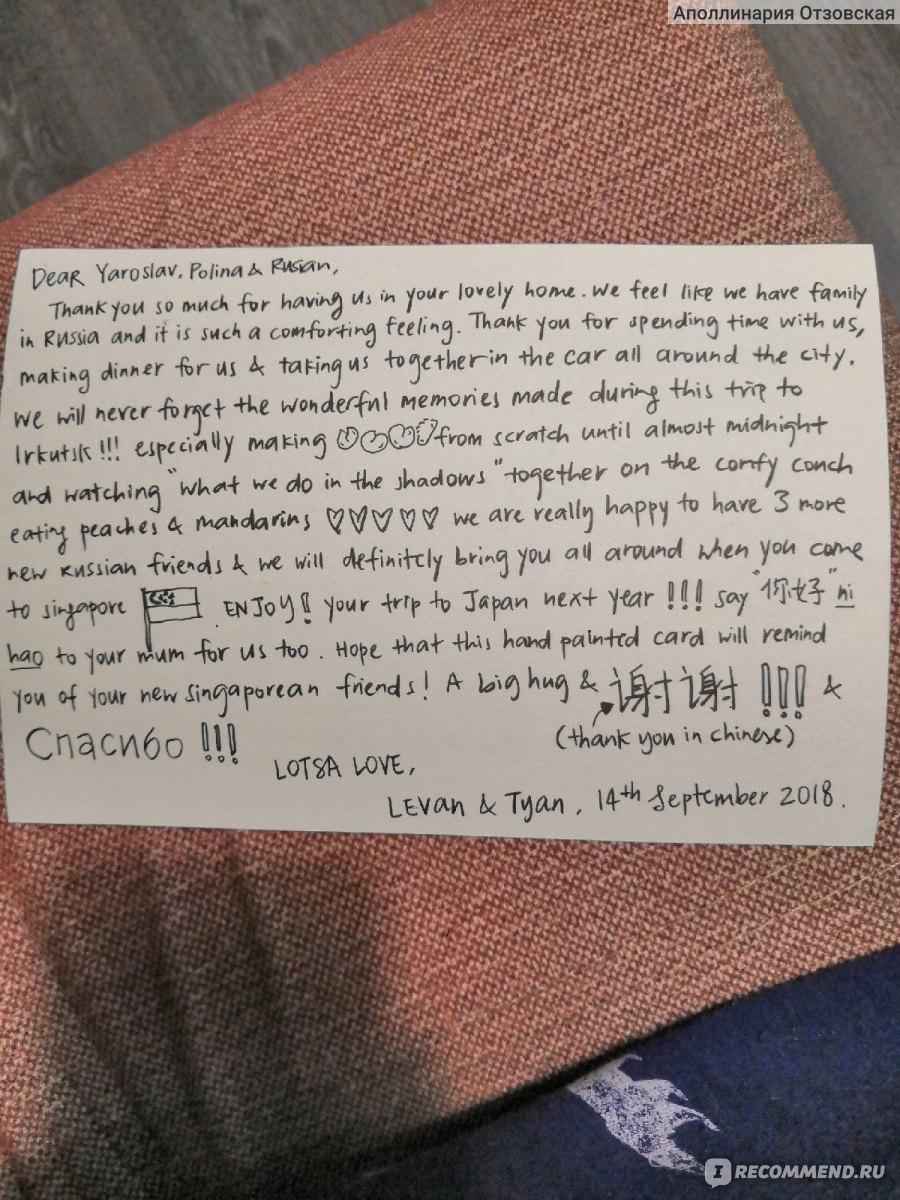 Аполлинария Отзовская
Dear Yaroslav, Polina & Ruslan,
Thank you so much for having us in your lovely home. We feel like we have family
in Russia and it is such a comforting feeling. Thank you for spending time with us,
making dinner for us & taking us together in the car all around the city.
We will never forget the wonderful memories made during this trip to
Irkutsk!!! especially making from scratch until almost midnight
and watching "what we do in the shadows" together on the comfy couch
eating peaches & mandarins ♡♡♡♡♡ we are really happy to have 3 more
new Russian friends & we will definitely bring you all around when you come
to singapore ENJOY! your trip to Japan next year!!! say "你好" ni
hao to your mum for us too. Hope that this hand painted card will remind
you of your new singaporean friends! A big hug & 谢谢!!! &
Спасибо!!! (thank you in chinese)
LOTSA LOVE,
LEVan & Tyan, 14th September 2018.
IRECOMMEND.RU